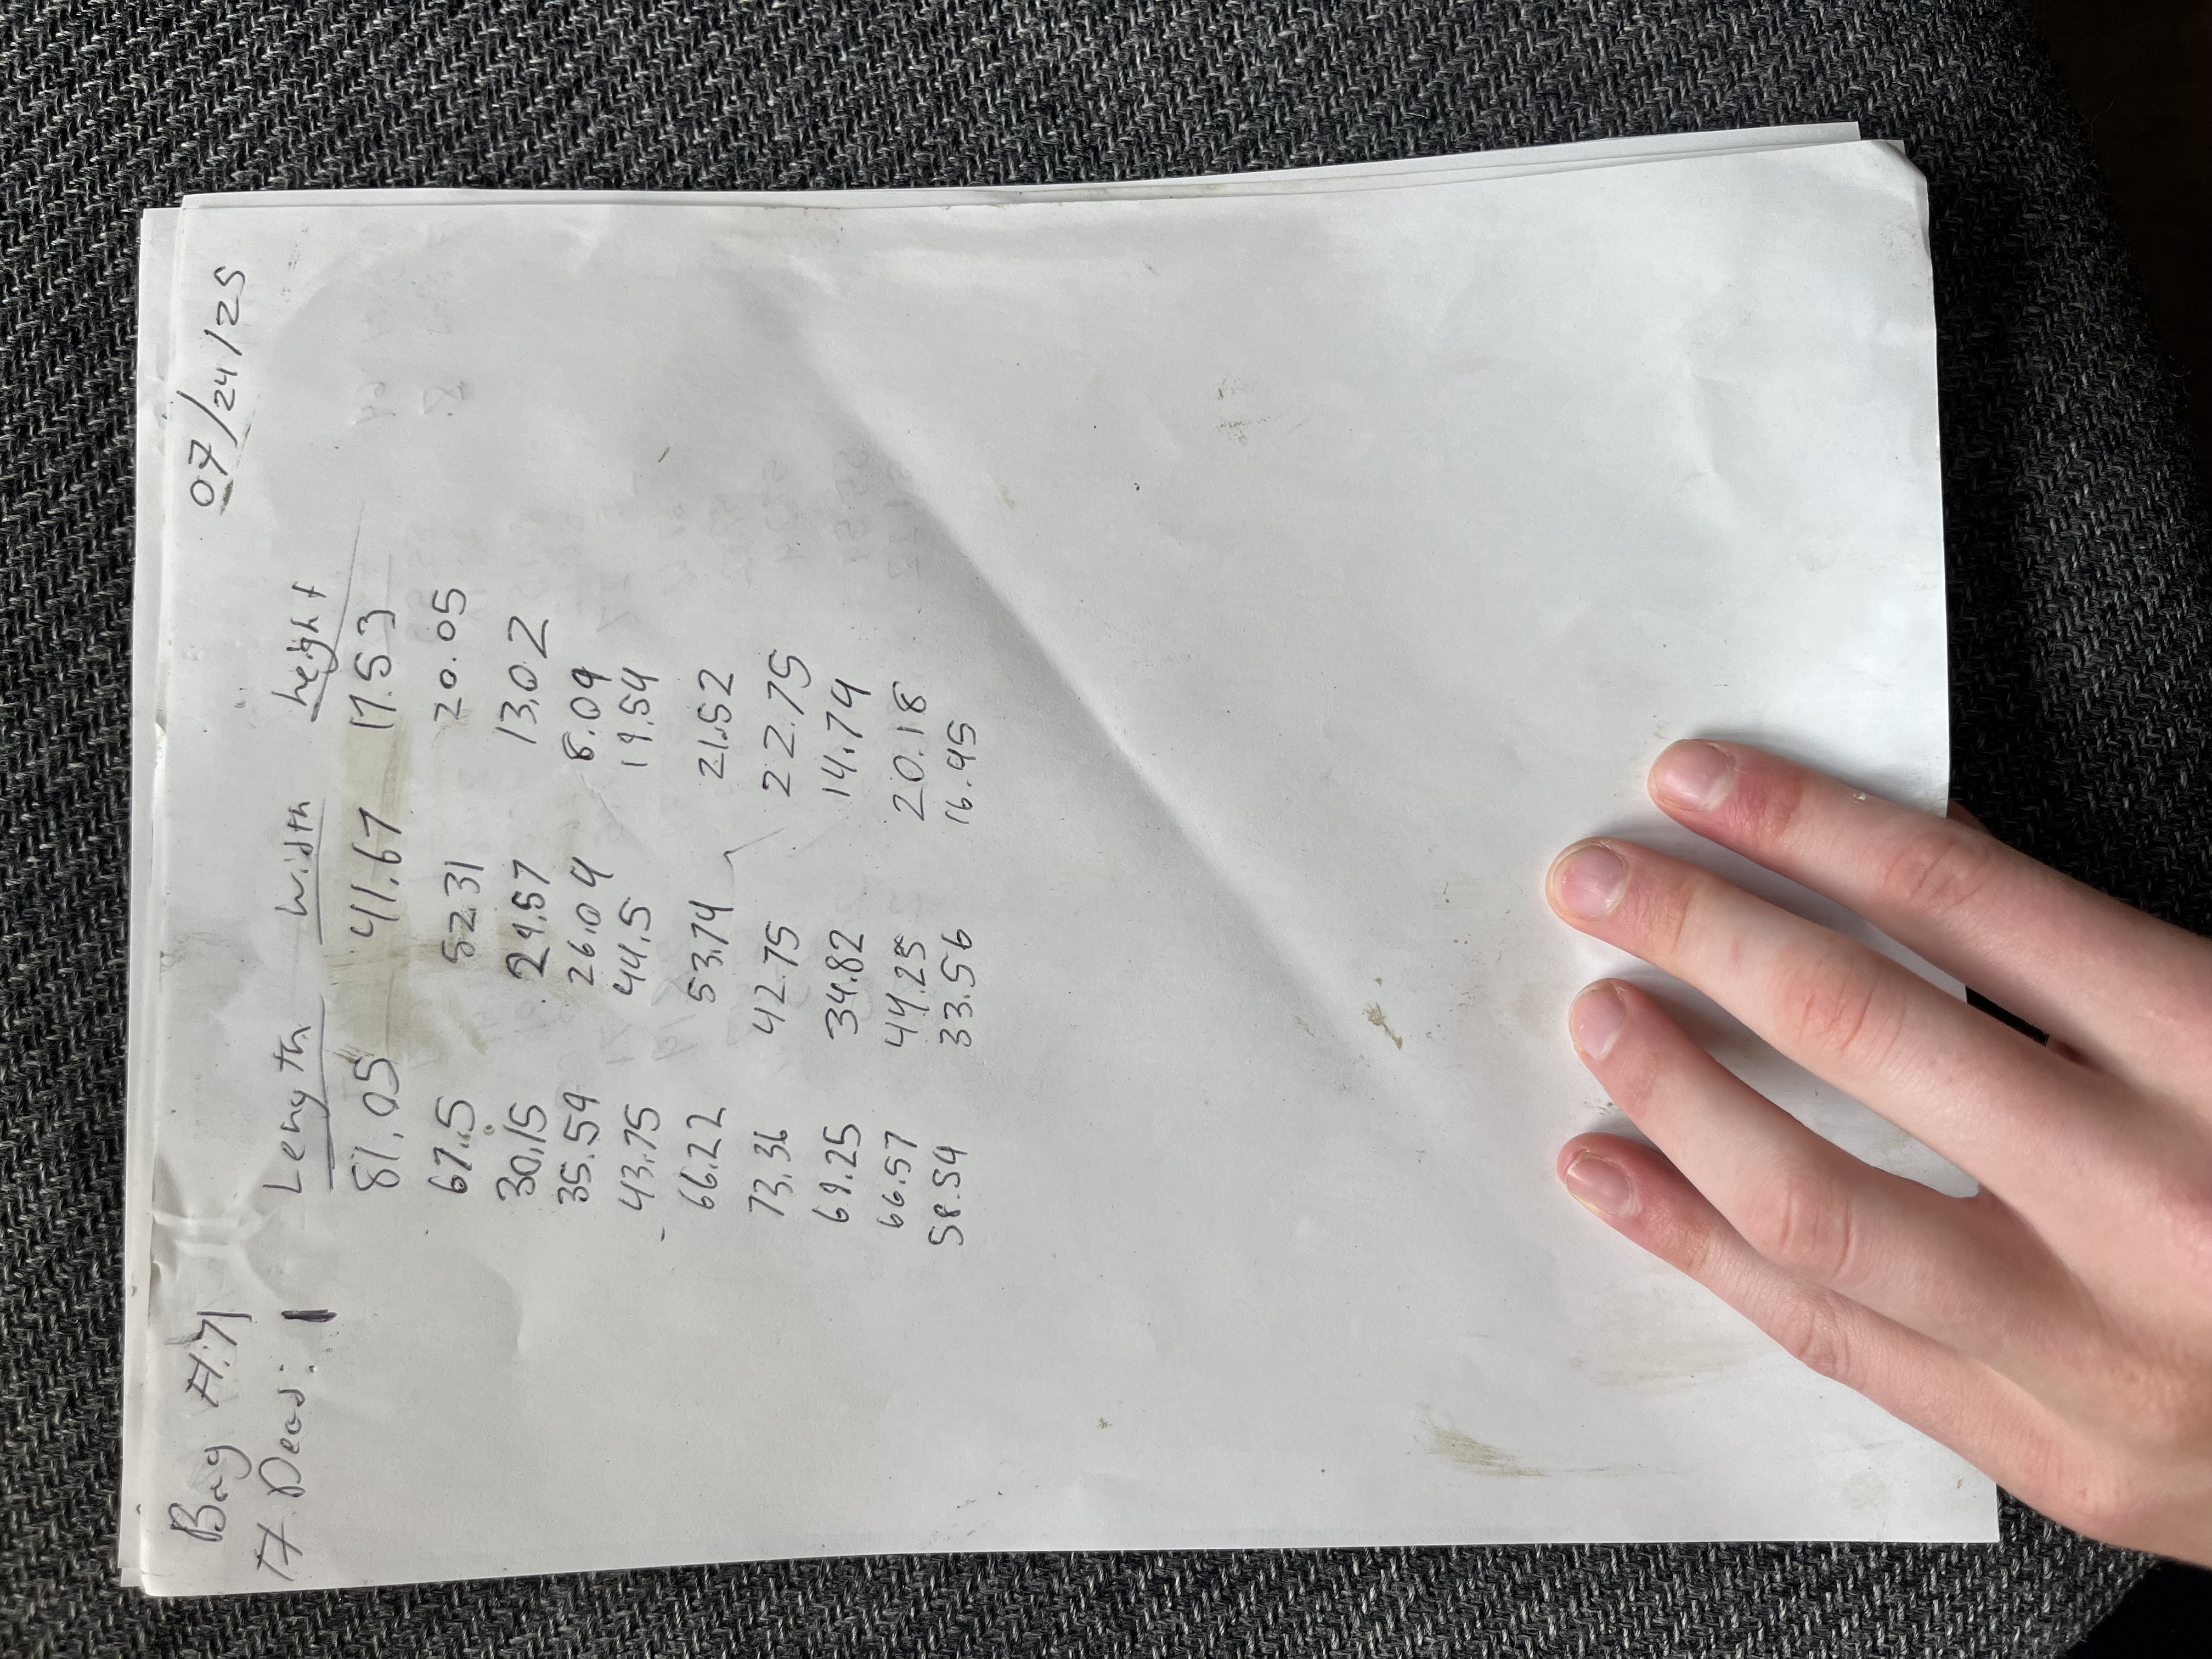 Bag #:71 07/24/25
# Dead: 1 Length Width height
81.05 41.67 17.53
67.5 52.31 20.05
30.15 29.57 13.02
35.59 26.09 8.09
43.75 44.5 19.54
66.22 53.74 21.52
73.36 42.75 22.75
69.25 34.82 14.79
66.57 44.25 20.18
58.59 33.56 16.95